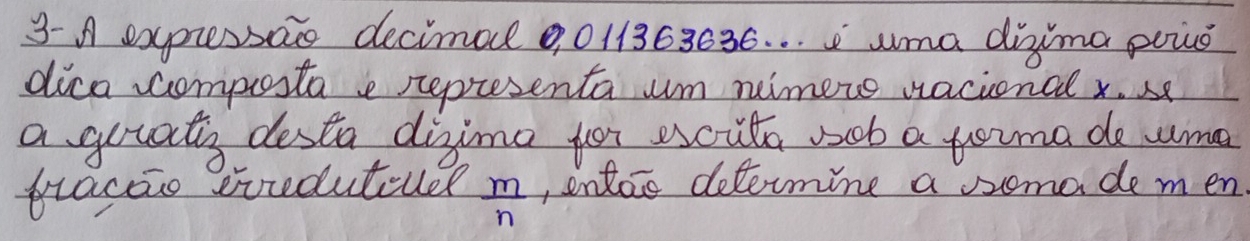 3- A expressão decimal 0,011363636... é uma dizima perió
dica composta e representa um número racional x. se
a geratiz desta dizima for escrita sob a forma de uma
fração irredutível m/n, então determine a soma de m e n.